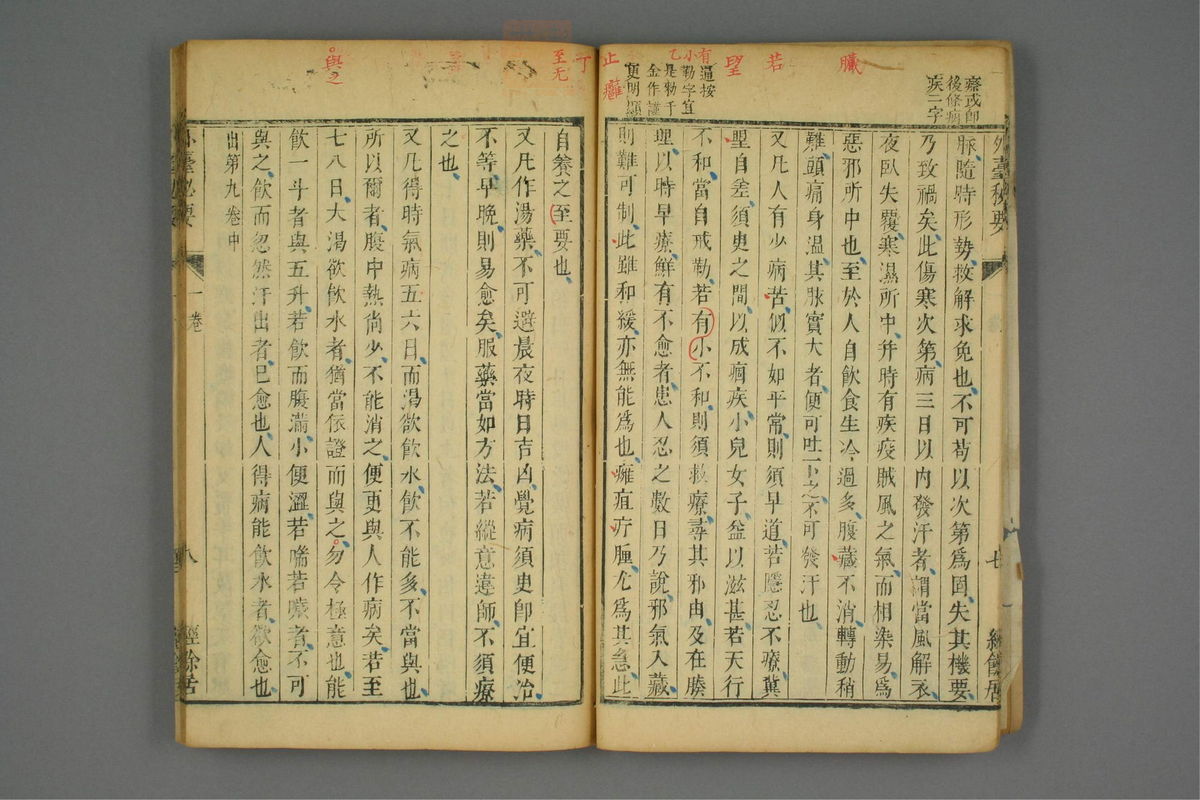 外臺秘要
七
經餘居
脉隨時形勢救解求免也不可苟以次第爲固失其機要
乃致禍矣此傷寒次第病三日以内發汗者謂當風解衣
夜臥失覆寒濕所中并時有疾疫賊風之氣而相染易爲
惡邪所中也至於人自飲食生冷過多腹藏不消轉動稍
難頭痛身溫其脉實大者便可吐下之不可發汗也
又凡人有少病苦似不如平常則須早道若隱忍不療冀
望自差須臾之間以成痼疾小兒女子益以滋甚若天行
不和當自戒勒若有小不和則須救療尋其邪由及在腠
理以時早療鮮有不愈者患人忍之數日乃說邪氣入藏
則難可制此雖和緩亦無能爲也癰疽疔腫尤爲其急此
自養之至要也
又凡作湯藥不可避晨夜時日吉凶覺病須臾即宜便治
不等早晚則易愈矣服藥當如方法若縱意違師不須療
之也
又凡得時氣病五六日而渴欲飲水飲不能多不當與也
所以爾者腹中熱尚少不能消之便更與人作病矣若至
七八日大渴欲飲水者猶當依證而與之勿令極意也能
飲一斗者與五升若飲而腹滿小便澀若喘若噦者不可
與之飲而忽然汗出者已愈也人得病能飲水者欲愈也
出第九卷中
外臺秘要
一卷
八
經餘居
瘵或即
後條痼
疾二字
臟
若
望
有小乙
逼按
勒字宜
是勑于
金作謹
更明顯
止
癰
丁
至无
與之